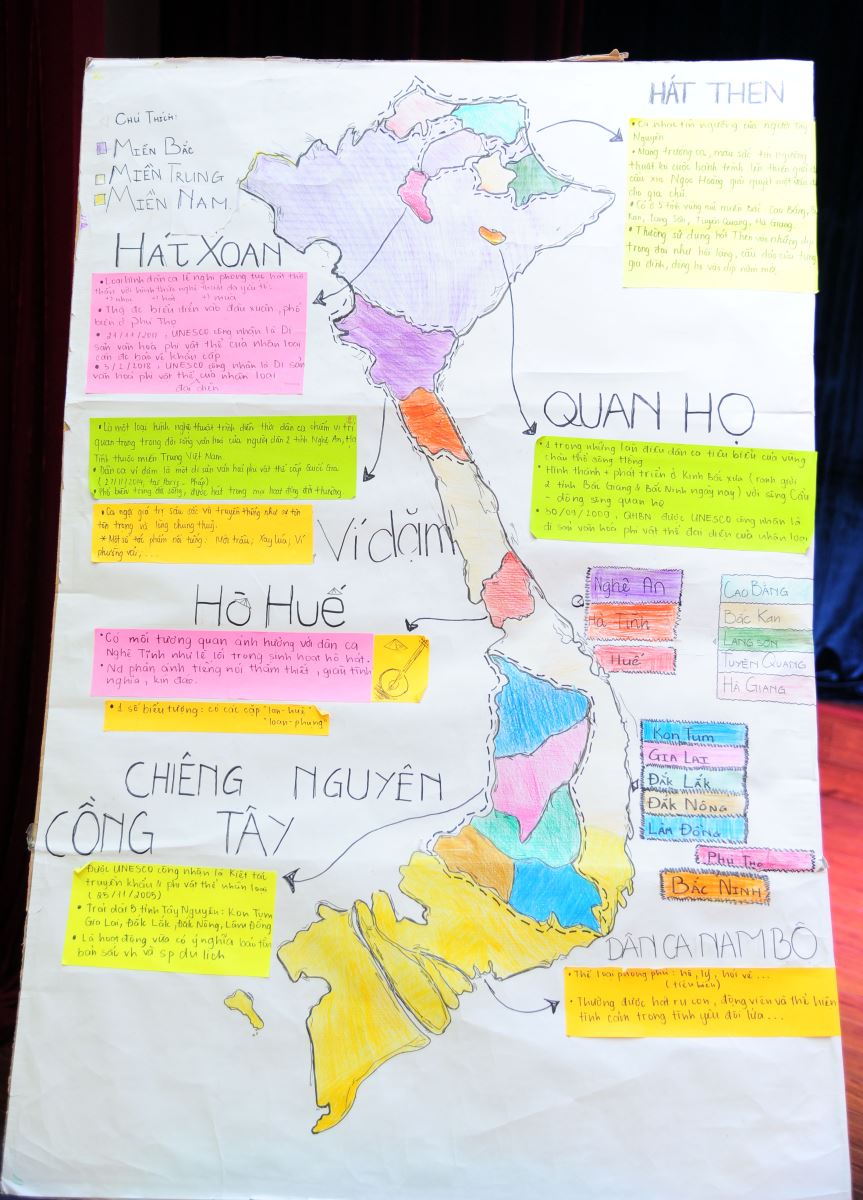 CHÚ THÍCH:
MIỀN BẮC
MIỀN TRUNG
MIỀN NAM
HÁT THEN
• Ca nhạc tín ngưỡng của người Tày
Nguyên
• Mang trường ca, màu sắc tín ngưỡng
thuật lại cuộc hành trình lên thiên giới
cầu xin Ngọc Hoàng giải quyết một vấn đề
cho gia chủ
• Có ở 5 tỉnh vùng núi miền Bắc: Cao Bằng,
Kạn, Lạng Sơn, Tuyên Quang, Hà Giang
• Thường sử dụng hát Then vào những dịp
trọng đại như hội làng, cầu đảo của từng
gia đình, dòng họ vào dịp năm mới
HÁT XOAN
• Loại hình dân ca lễ nghi phong tục hát thờ
thần với hình thức nghệ thuật đa yếu tố:
+) nhạc +) hát +) múa
• Thg đc biểu diễn vào đầu xuân, phổ
biến ở Phú Thọ
• 24/11/2011, UNESCO công nhận là Di
sản văn hoá phi vật thể của nhân loại
cần đc bảo vệ khẩn cấp
• 3/2/2018, UNESCO công nhận là Di sản
văn hoá phi vật thể của nhân loại
đại diện
QUAN HỌ
• 1 trong những làn điệu dân ca tiêu biểu của vùng
châu thổ sông Hồng
• Hình thành + phát triển ở Kinh Bắc xưa (ranh giới
2 tỉnh Bắc Giang & Bắc Ninh ngày nay) với sông Cầu
- dòng sông quan họ
• 30/09/2009, QHBN được UNESCO công nhận là
di sản văn hoá phi vật thể đại diện của nhân loại
• Là một loại hình nghệ thuật trình diễn thơ dân ca chiếm vị trí
quan trọng trong đời sống văn hoá của người dân 2 tỉnh Nghệ An, Hà
Tĩnh thuộc miền Trung Việt Nam
• Dân ca ví dặm là một di sản văn hoá phi vật thể cấp Quốc Gia
(27/11/2014, tại Paris - Pháp)
• Phổ biến trong đời sống, được hát trong mọi hoạt động đời thường
• Ca ngợi giá trị sâu sắc và truyền thống như sự tôn
tôn trọng và lòng chung thuỷ.
* Một số tác phẩm nổi tiếng: Xay lúa; Ví
phường vải;...
Ví dặm
HÒ HUẾ
• Có mối tương quan ảnh hưởng với dân ca
Nghệ Tĩnh như lề lối trong sinh hoạt hò hát.
• Nd phản ánh tiếng nói thắm thiết, giàu tình
nghĩa, kín đáo.
• 1 số biểu tượng: có các cặp "lan-huệ"
"loan-phụng"
Nghệ An
Hà Tĩnh
Huế
CAO BẰNG
Bắc Kạn
LẠNG SƠN
TUYÊN QUANG
HÀ GIANG
Kon Tum
GIA LAI
Đắk Lắk
ĐẮK NÔNG
LÂM ĐỒNG
PHÚ THỌ
BẮC NINH
CHIÊNG NGUYÊN
CỒNG TÂY
Được UNESCO công nhận là Kiệt tác
truyền khẩu & phi vật thể nhân loại
(25/11/2005)
• Trải dài 5 tỉnh Tây Nguyên: Kon Tum
Gia Lai, Đắk Lắk, Đắk Nông, Lâm Đồng
• Là hoạt động vừa có ý nghĩa bảo tồn
bản sắc vh và sp du lịch
DÂN CA NAM BỘ
• Thể loại phong phú: hò, lý, nói về...
(tiêu biểu)
• Thường được hát ru con, động viên và thể hiện
tình cảm trong tình yêu đôi lứa...